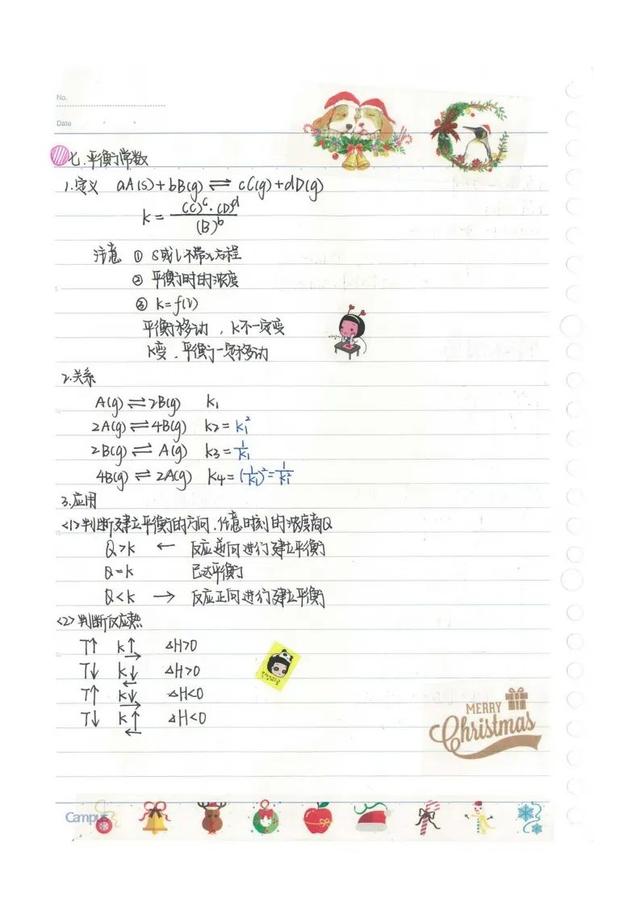 No.
Date
七.平衡常数
1.定义 aA(s)+bB(g)⇌cC(g)+dD(g)
K=(C)^c·(D)^d/(B)^b
注意 ① S或l不带入方程
② 平衡时的浓度
③ K=f(T)
平衡移动,K不一定变
K变,平衡一定移动
2.关系
A(g)⇌2B(g) K₁
2A(g)⇌4B(g) K₂=K₁²
2B(g)⇌A(g) K₃=1/K₁
4B(g)⇌2A(g) K₄=(1/K₁)²=1/K₁²
3.应用
<1>判断建立平衡的方向.任意时刻的浓度商Q
Q>K ← 反应逆向进行建立平衡
Q=K 已达平衡
Q<K → 反应正向进行建立平衡
<2>判断反应热
T↑ K↑ → ΔH>0
T↓ K↓ ← ΔH>0
T↑ K↓ → ΔH<0
T↓ K↑ ← ΔH<0
MERRY
Christmas
Campus